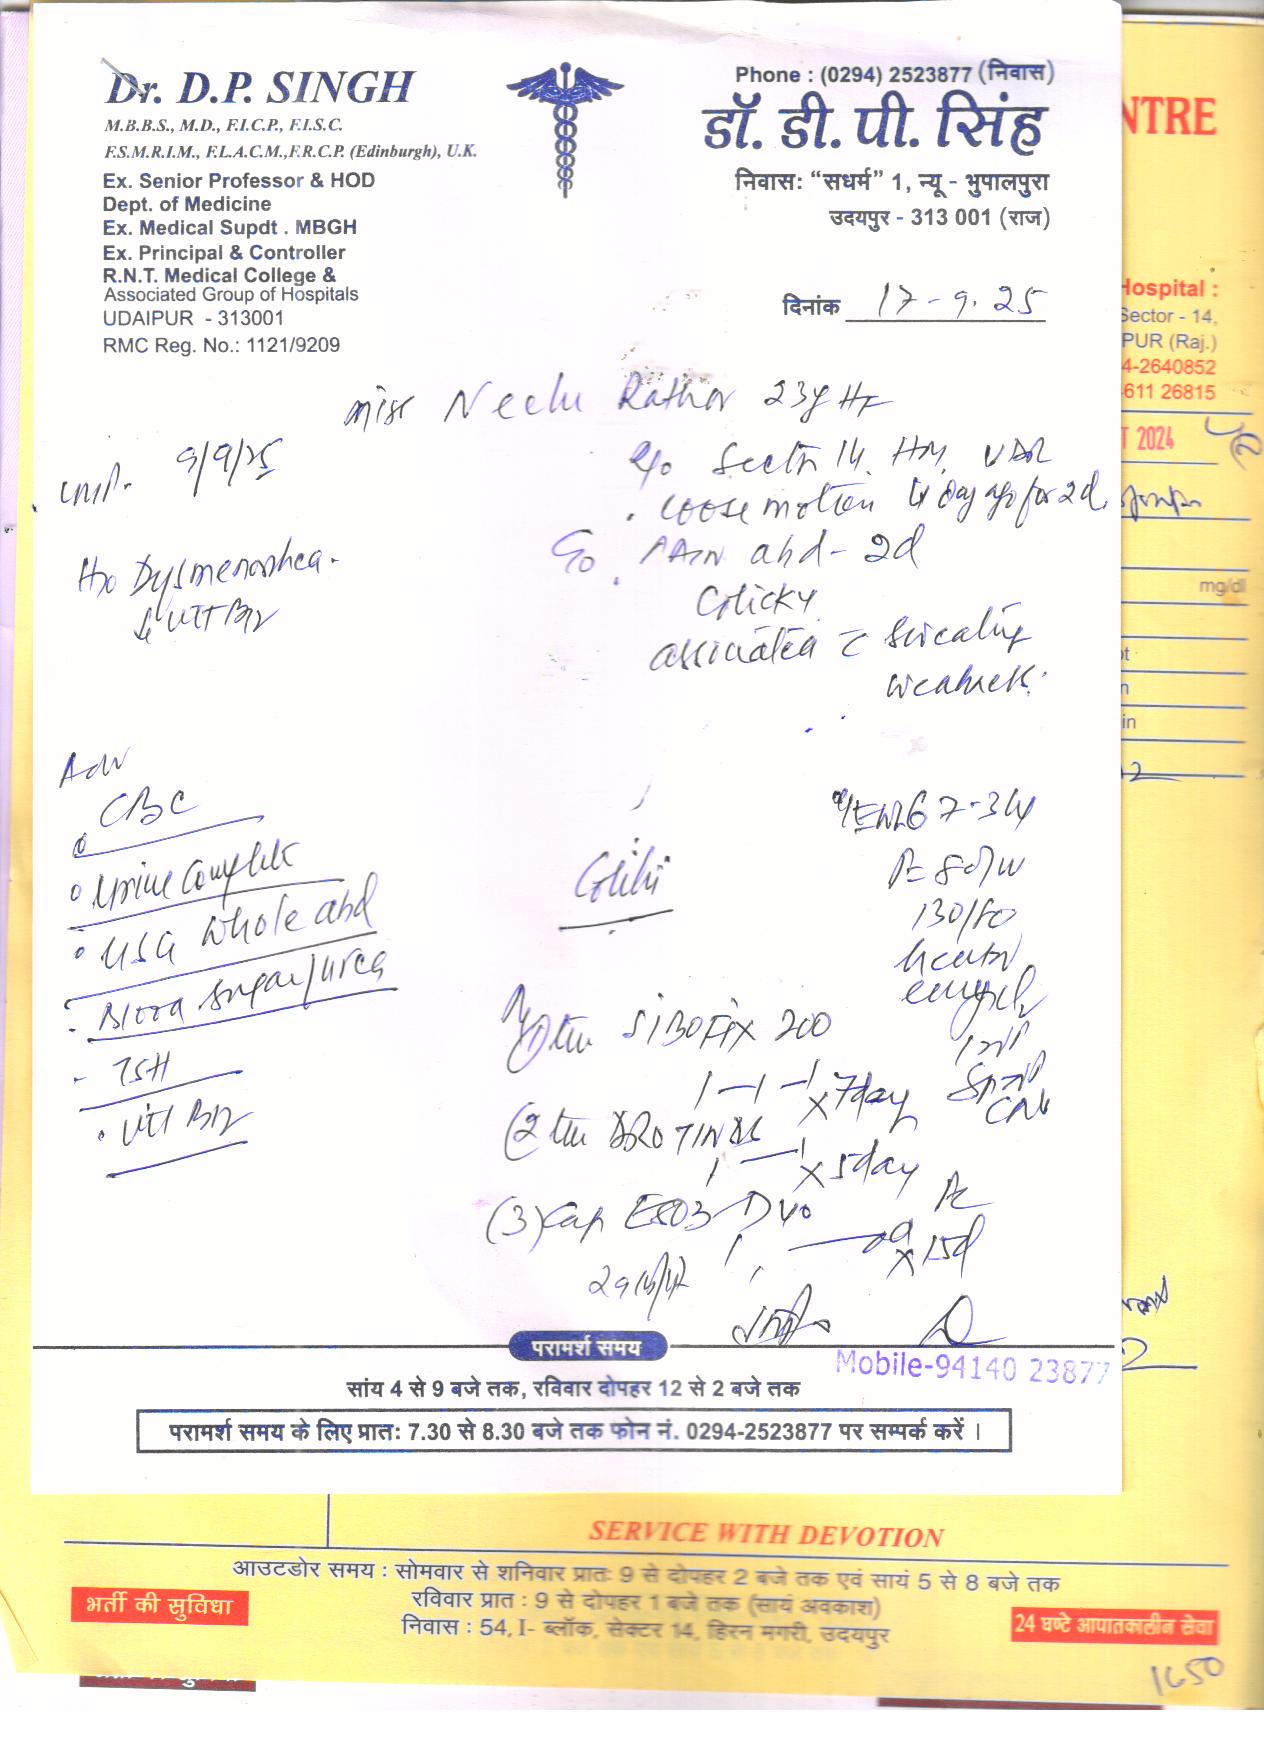 Dr. D.P. SINGH
M.B.B.S., M.D., F.I.C.P., F.I.S.C.
F.S.M.R.I.M., F.L.A.C.M.,F.R.C.P. (Edinburgh), U.K.
Ex. Senior Professor & HOD
Dept. of Medicine
Ex. Medical Supdt . MBGH
Ex. Principal & Controller
R.N.T. Medical College &
Associated Group of Hospitals
UDAIPUR - 313001
RMC Reg. No.: 1121/9209
Phone : (0294) 2523877 (निवास)
डॉ. डी. पी. सिंह
निवास: “सधर्म” 1, न्यू - भुपालपुरा
उदयपुर - 313 001 (राज)
दिनांक 17-9-25
Miss Neelu Rathor 23y HF
R/o Sector 14, HM, UDR
LMP. 9/9/25
. Loose motion 4 day ago for 2d.
C/o . PAin abd - 2d
Colicky
associated c sweating
weakness.
H/o Dysmenorrhea.
↓ VIT B12
Adv
CBC
Urine Complete
USG Whole abd
Blood Sugar/urea
- TSH
. VIT B12
Colitis
130/80
(1) tab SIBOFIX 200
1-1-1 x 7day
(2 tab DROTIN
1 — 1 x 5day
(3) Cap ESO3 D 40
1 x 15d
परामर्श समय
Mobile-94140 23877
सांय 4 से 9 बजे तक, रविवार दोपहर 12 से 2 बजे तक
परामर्श समय के लिए प्रात: 7.30 से 8.30 बजे तक फोन नं. 0294-2523877 पर सम्पर्क करें ।
NTRE
Hospital :
Sector - 14,
PUR (Raj.)
4-2640852
611 26815
T 2024
mg/dl
in
SERVICE WITH DEVOTION
आउटडोर समय : सोमवार से शनिवार प्रात: 9 से दोपहर 2 बजे तक एवं सायं 5 से 8 बजे तक
रविवार प्रात : 9 से दोपहर 1 बजे तक (सायं अवकाश)
निवास : 54, I- ब्लॉक, सेक्टर 14, हिरन मगरी, उदयपुर
भर्ती की सुविधा
24 घण्टे आपातकालीन सेवा
1650